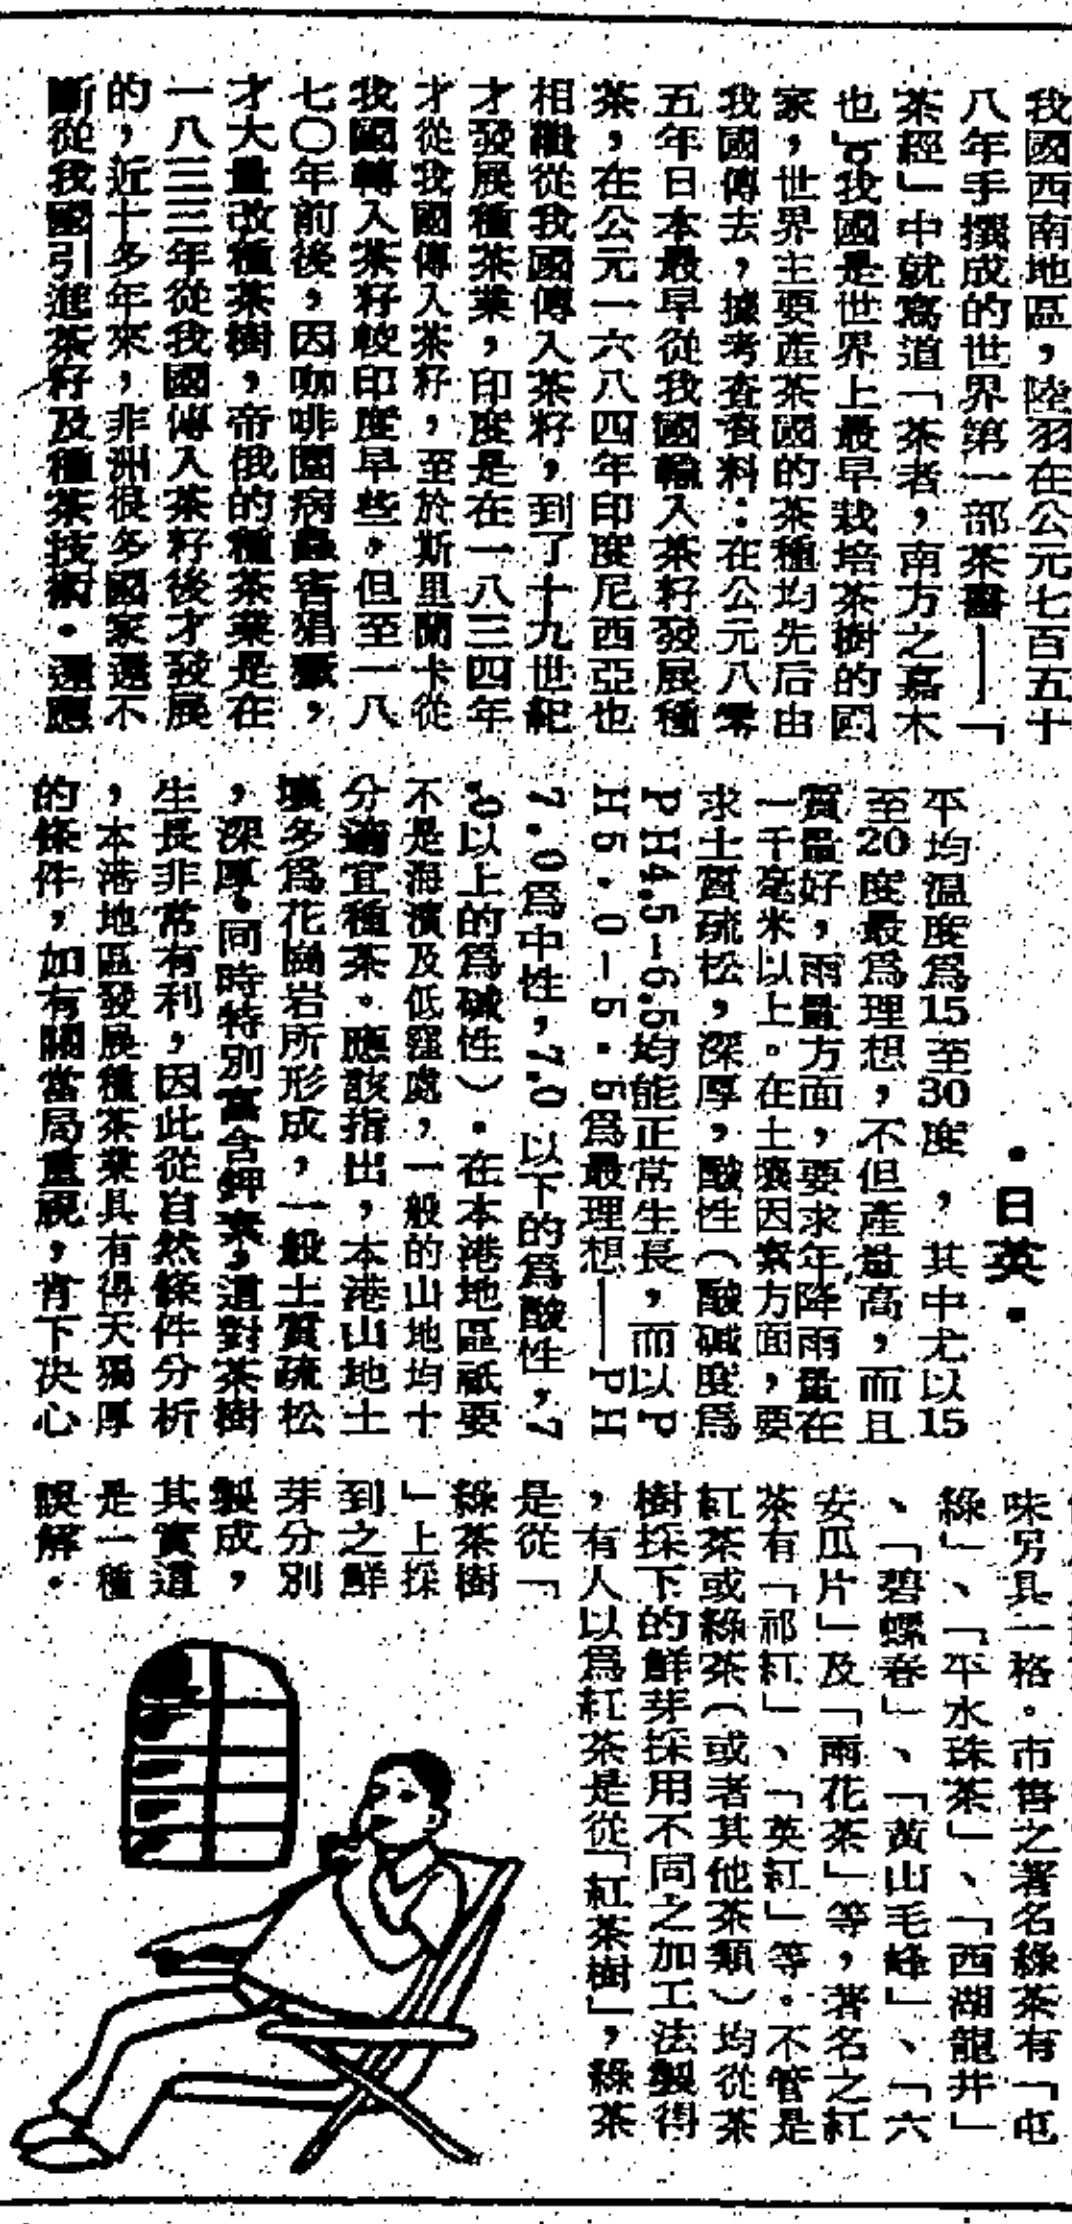 我國西南地區，陸羽在公元七百五十
八年手撰成的世界第一部茶書——「
茶經」中就寫道「茶者，南方之嘉木
也」，我國是世界上最早栽培茶樹的國
家，世界主要產茶國的茶種均先后由
我國傳去，據考查資料：在公元八零
五年日本最早從我國輸入茶籽發展種
茶，在公元一六八四年印度尼西亞也
相繼從我國傳入茶籽，到了十九世紀
才發展種茶業，印度是在一八三四年
才從我國傳入茶籽，至於斯里蘭卡從
我國轉入茶籽較印度早些，但至一八
七〇年前後，因咖啡園病蟲害猖獗，
才大量改種茶樹，帝俄的種茶業是在
一八三三年從我國傳入茶籽後才發展
的，近十多年來，非洲很多國家還不
斷從我國引進茶籽及種茶技術。還應
・日英・
平均溫度爲15至30度，其中尤以15
至20度最爲理想，不但產量高，而且
質量好，雨量方面，要求年降雨量在
一千毫米以上。在土壤因素方面，要
求土質疏松，深厚，酸性（酸碱度爲
PH4.5－6.5均能正常生長，而以P
H5．0－5．5爲最理想——PH
7．0爲中性，7.0以下的爲酸性，7
.0以上的爲碱性）．在本港地區祇要
不是海濱及低窪處，一般的山地均十
分適宜種茶。應該指出，本港山地土
壤多爲花崗岩所形成，一般土質疏松
，深厚。同時特別富含鉀素，這對茶樹
生長非常有利，因此從自然條件分析
，本港地區發展種茶業具有得天獨厚
的條件，如有關當局重視，肯下決心
味另具一格。市售之著名綠茶有「屯
綠」、「平水珠茶」、「西湖龍井」
、「碧螺春」、「黃山毛峰」、「六
安瓜片」及「雨花茶」等，著名之紅
茶有「祁紅」、「英紅」等．不管是
紅茶或綠茶（或者其他茶類）均從茶
樹採下的鮮芽採用不同之加工法製得
，有人以爲紅茶是從「紅茶樹」，綠茶
是從「
綠茶樹
」上採
到之鮮
芽分別
製成，
其實這
是一種
誤解。